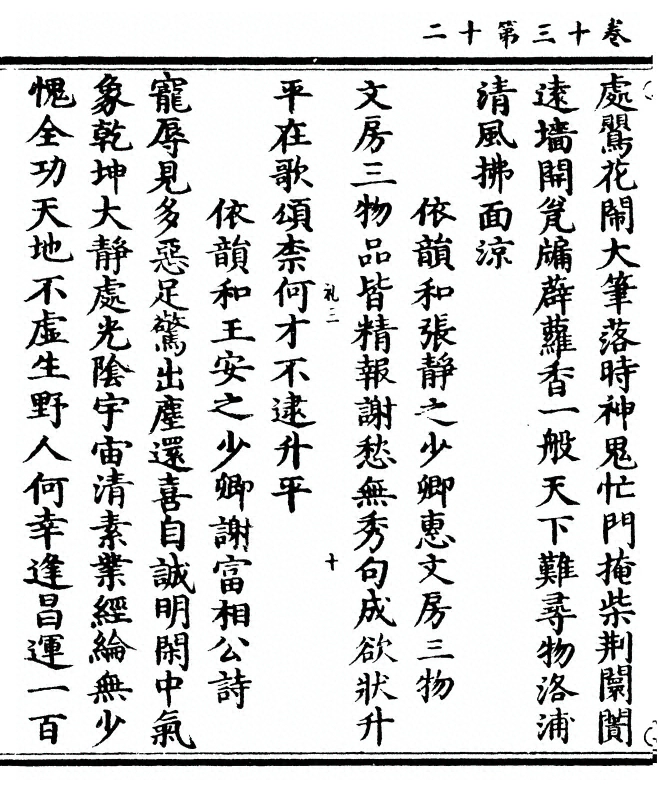 卷十三第十二
處鸎花鬧大筆落時神鬼忙門掩柴荆闤闠
遠墻開瓮牖薜蘿香一般天下難尋物洛浦
清風拂面涼
依韻和張靜之少卿惠文房三物
文房三物品皆精報謝愁無秀句成欲狀升
平在歌頌柰何才不逮升平
礼三
十
依韻和王安之少卿謝富相公詩
寵辱見多惡足驚出塵還喜自誠明閑中氣
象乾坤大靜處光陰宇宙清素業經綸無少
愧全功天地不虛生野人何幸逢昌運一百